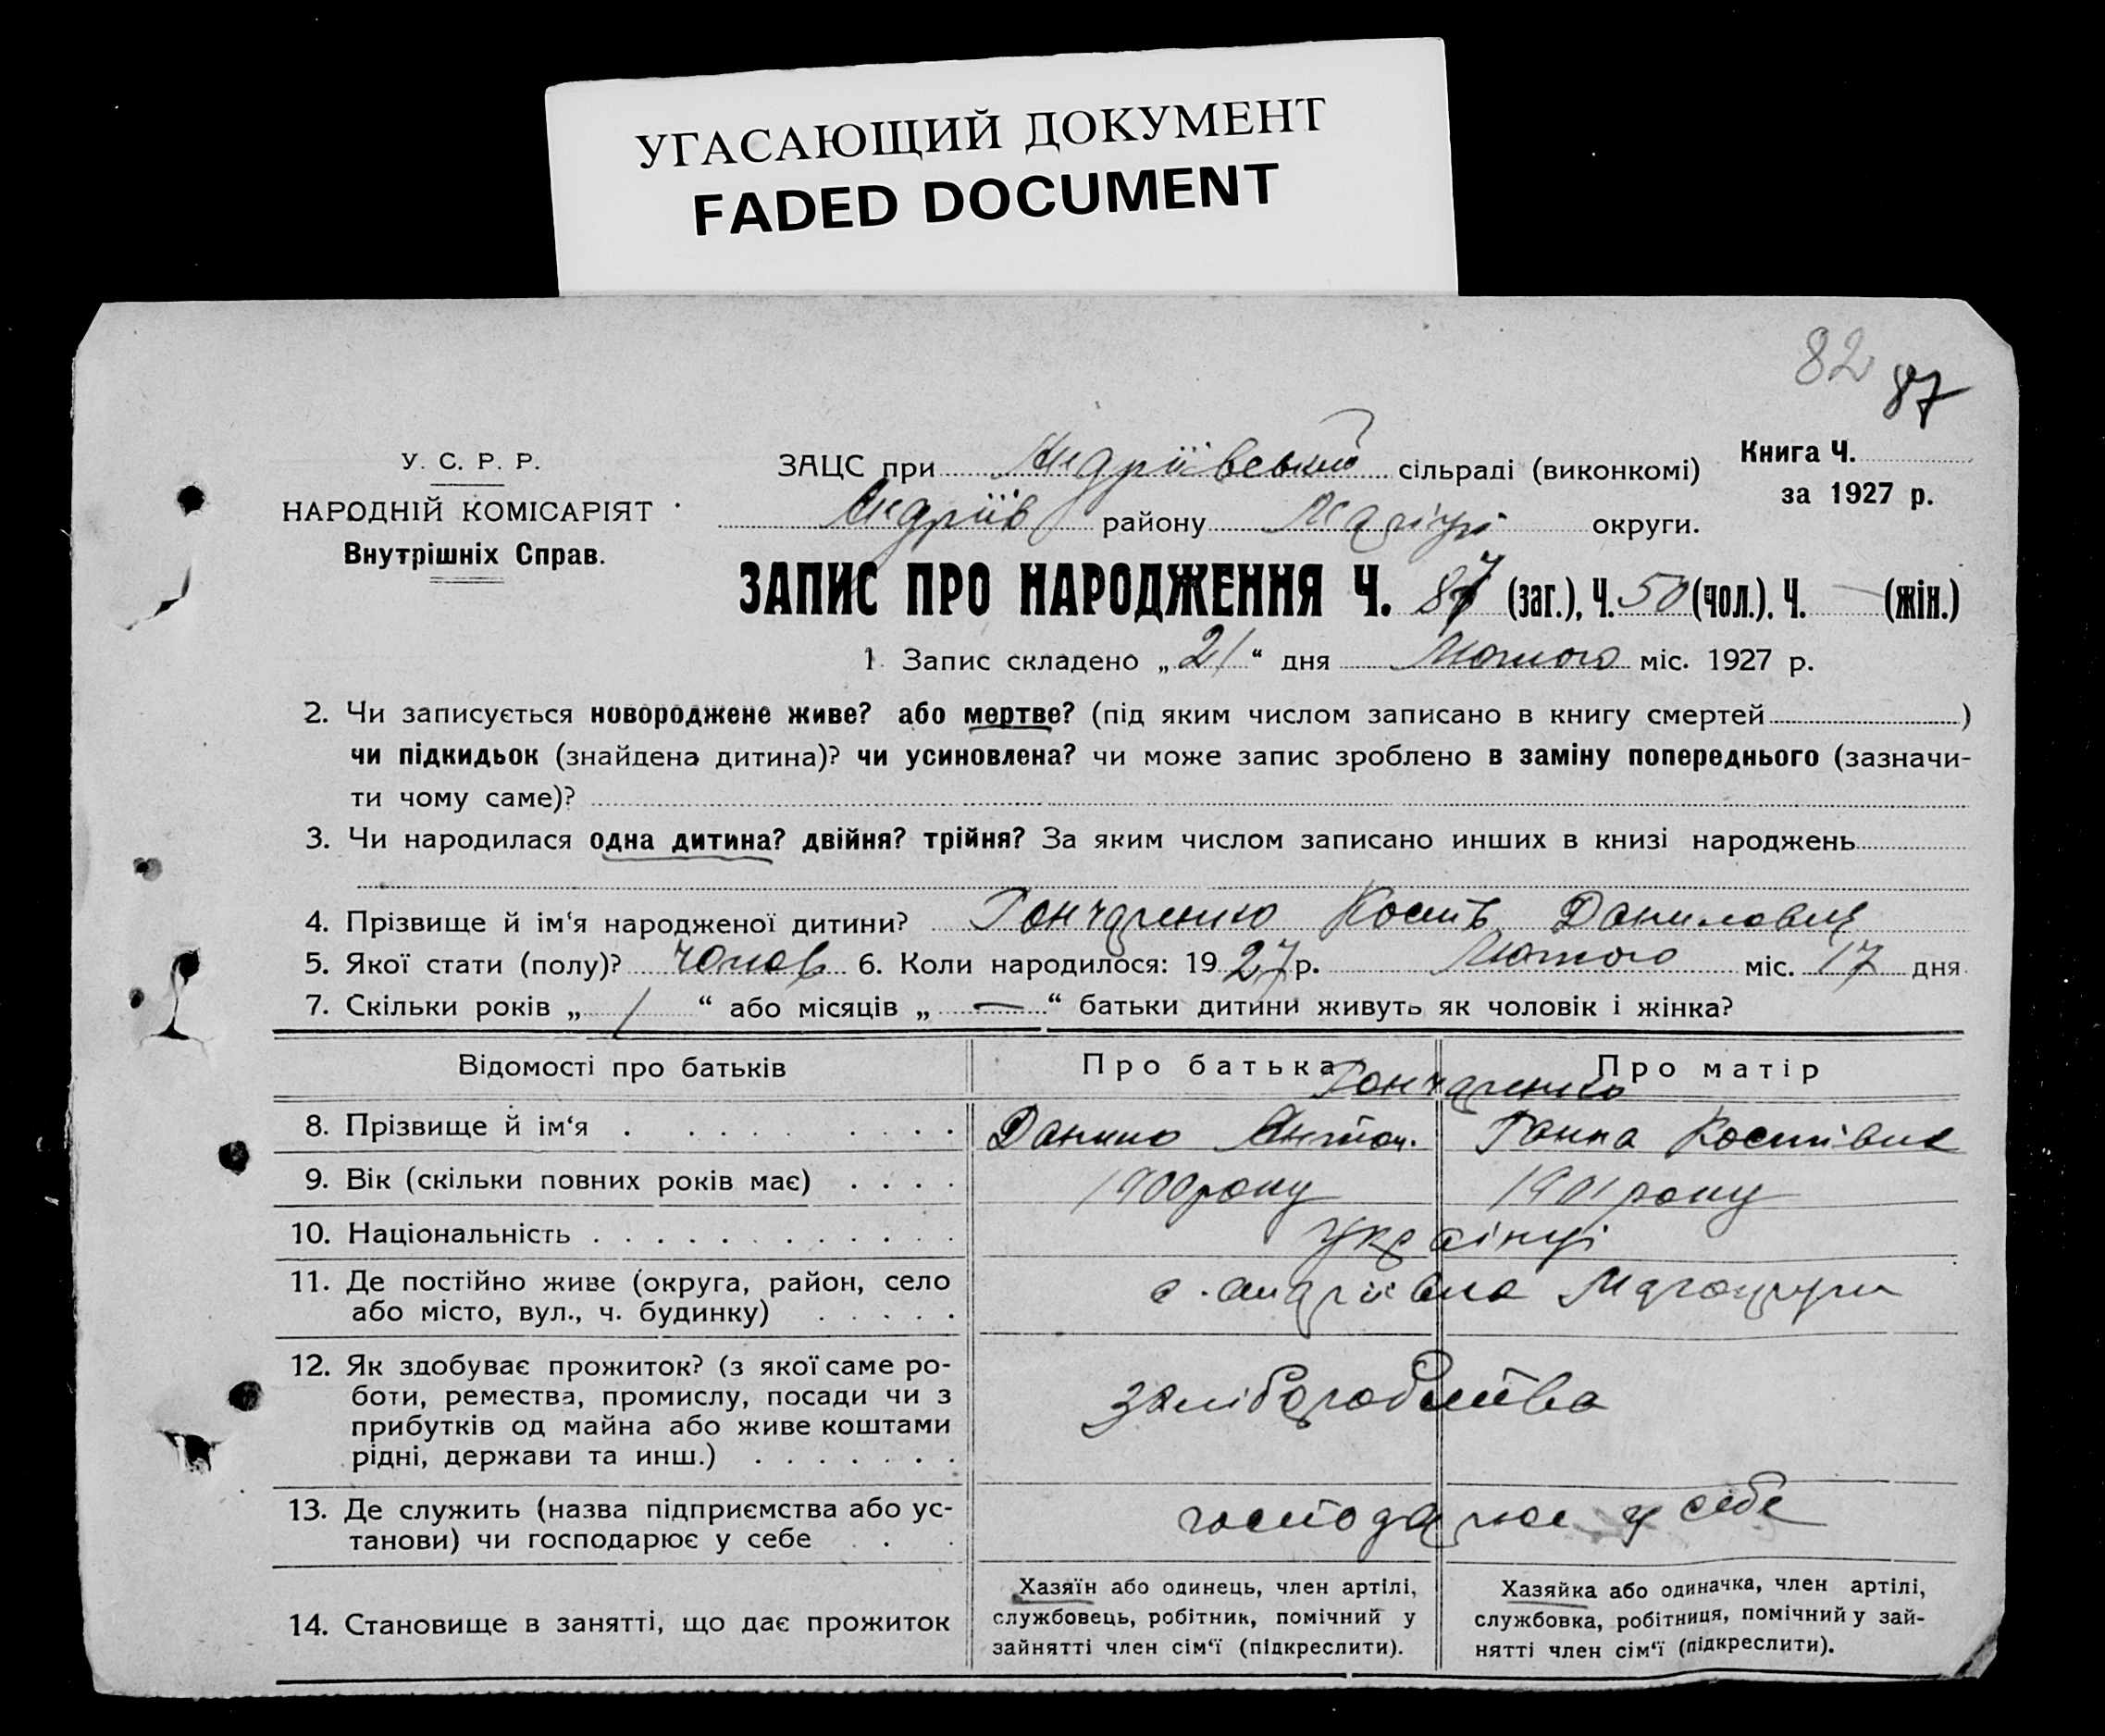 УГАСАЮЩИЙ ДОКУМЕНТ
FADED DOCUMENT
82
87
У. С. Р. Р.
НАРОДНІЙ КОМІСАРІЯТ
Внутрішніх Справ.
ЗАЦС при Андріївський сільраді (виконкомі)
Андріїв району округи.
Книга Ч.
за 1927 р.
ЗАПИС ПРО НАРОДЖЕННЯ Ч. 87 (заг.), Ч. 50 (чол.). Ч. — (жін.)
1. Запис складено „ 21 “ дня Лютого міс. 1927 р.
2. Чи записується новороджене живе? або мертве? (під яким числом записано в книгу смертей )
чи підкидьок (знайдена дитина)? чи усиновлена? чи може запис зроблено в заміну попереднього (зазначи-
ти чому саме)?
3. Чи народилася одна дитина? двійня? трійня? За яким числом записано инших в книзі народжень
4. Прізвище й ім‘я народженої дитини? Гончаренко Кость Данилович
5. Якої стати (полу)? чолов 6. Коли народилося: 1927 р. Лютого міс. 17 дня
7. Скільки років „ 1 “ або місяців „ — “ батьки дитини живуть як чоловік і жінка?
Відомості про батьків Про батька Про матір
Гончаренко
8. Прізвище й ім‘я Данило Антон. Ганна Костівна
9. Вік (скільки повних років має) 1900 року 1901 року
10. Національність українці
11. Де постійно живе (округа, район, село
або місто, вул., ч. будинку)
с. Андріївка
12. Як здобуває прожиток? (з якої саме ро-
боти, ремества, промислу, посади чи з
прибутків од майна або живе коштами
рідні, держави та инш.)
хліборобства
13. Де служить (назва підприємства або ус-
танови) чи господарює у себе
господарює у себе
14. Становище в занятті, що дає прожиток
Хазяїн або одинець, член артілі,
службовець, робітник, помічний у
зайнятті член сім‘ї (підкреслити).
Хазяйка або одиначка, член артілі,
службовка, робітниця, помічний у зай-
нятті член сім‘ї (підкреслити).